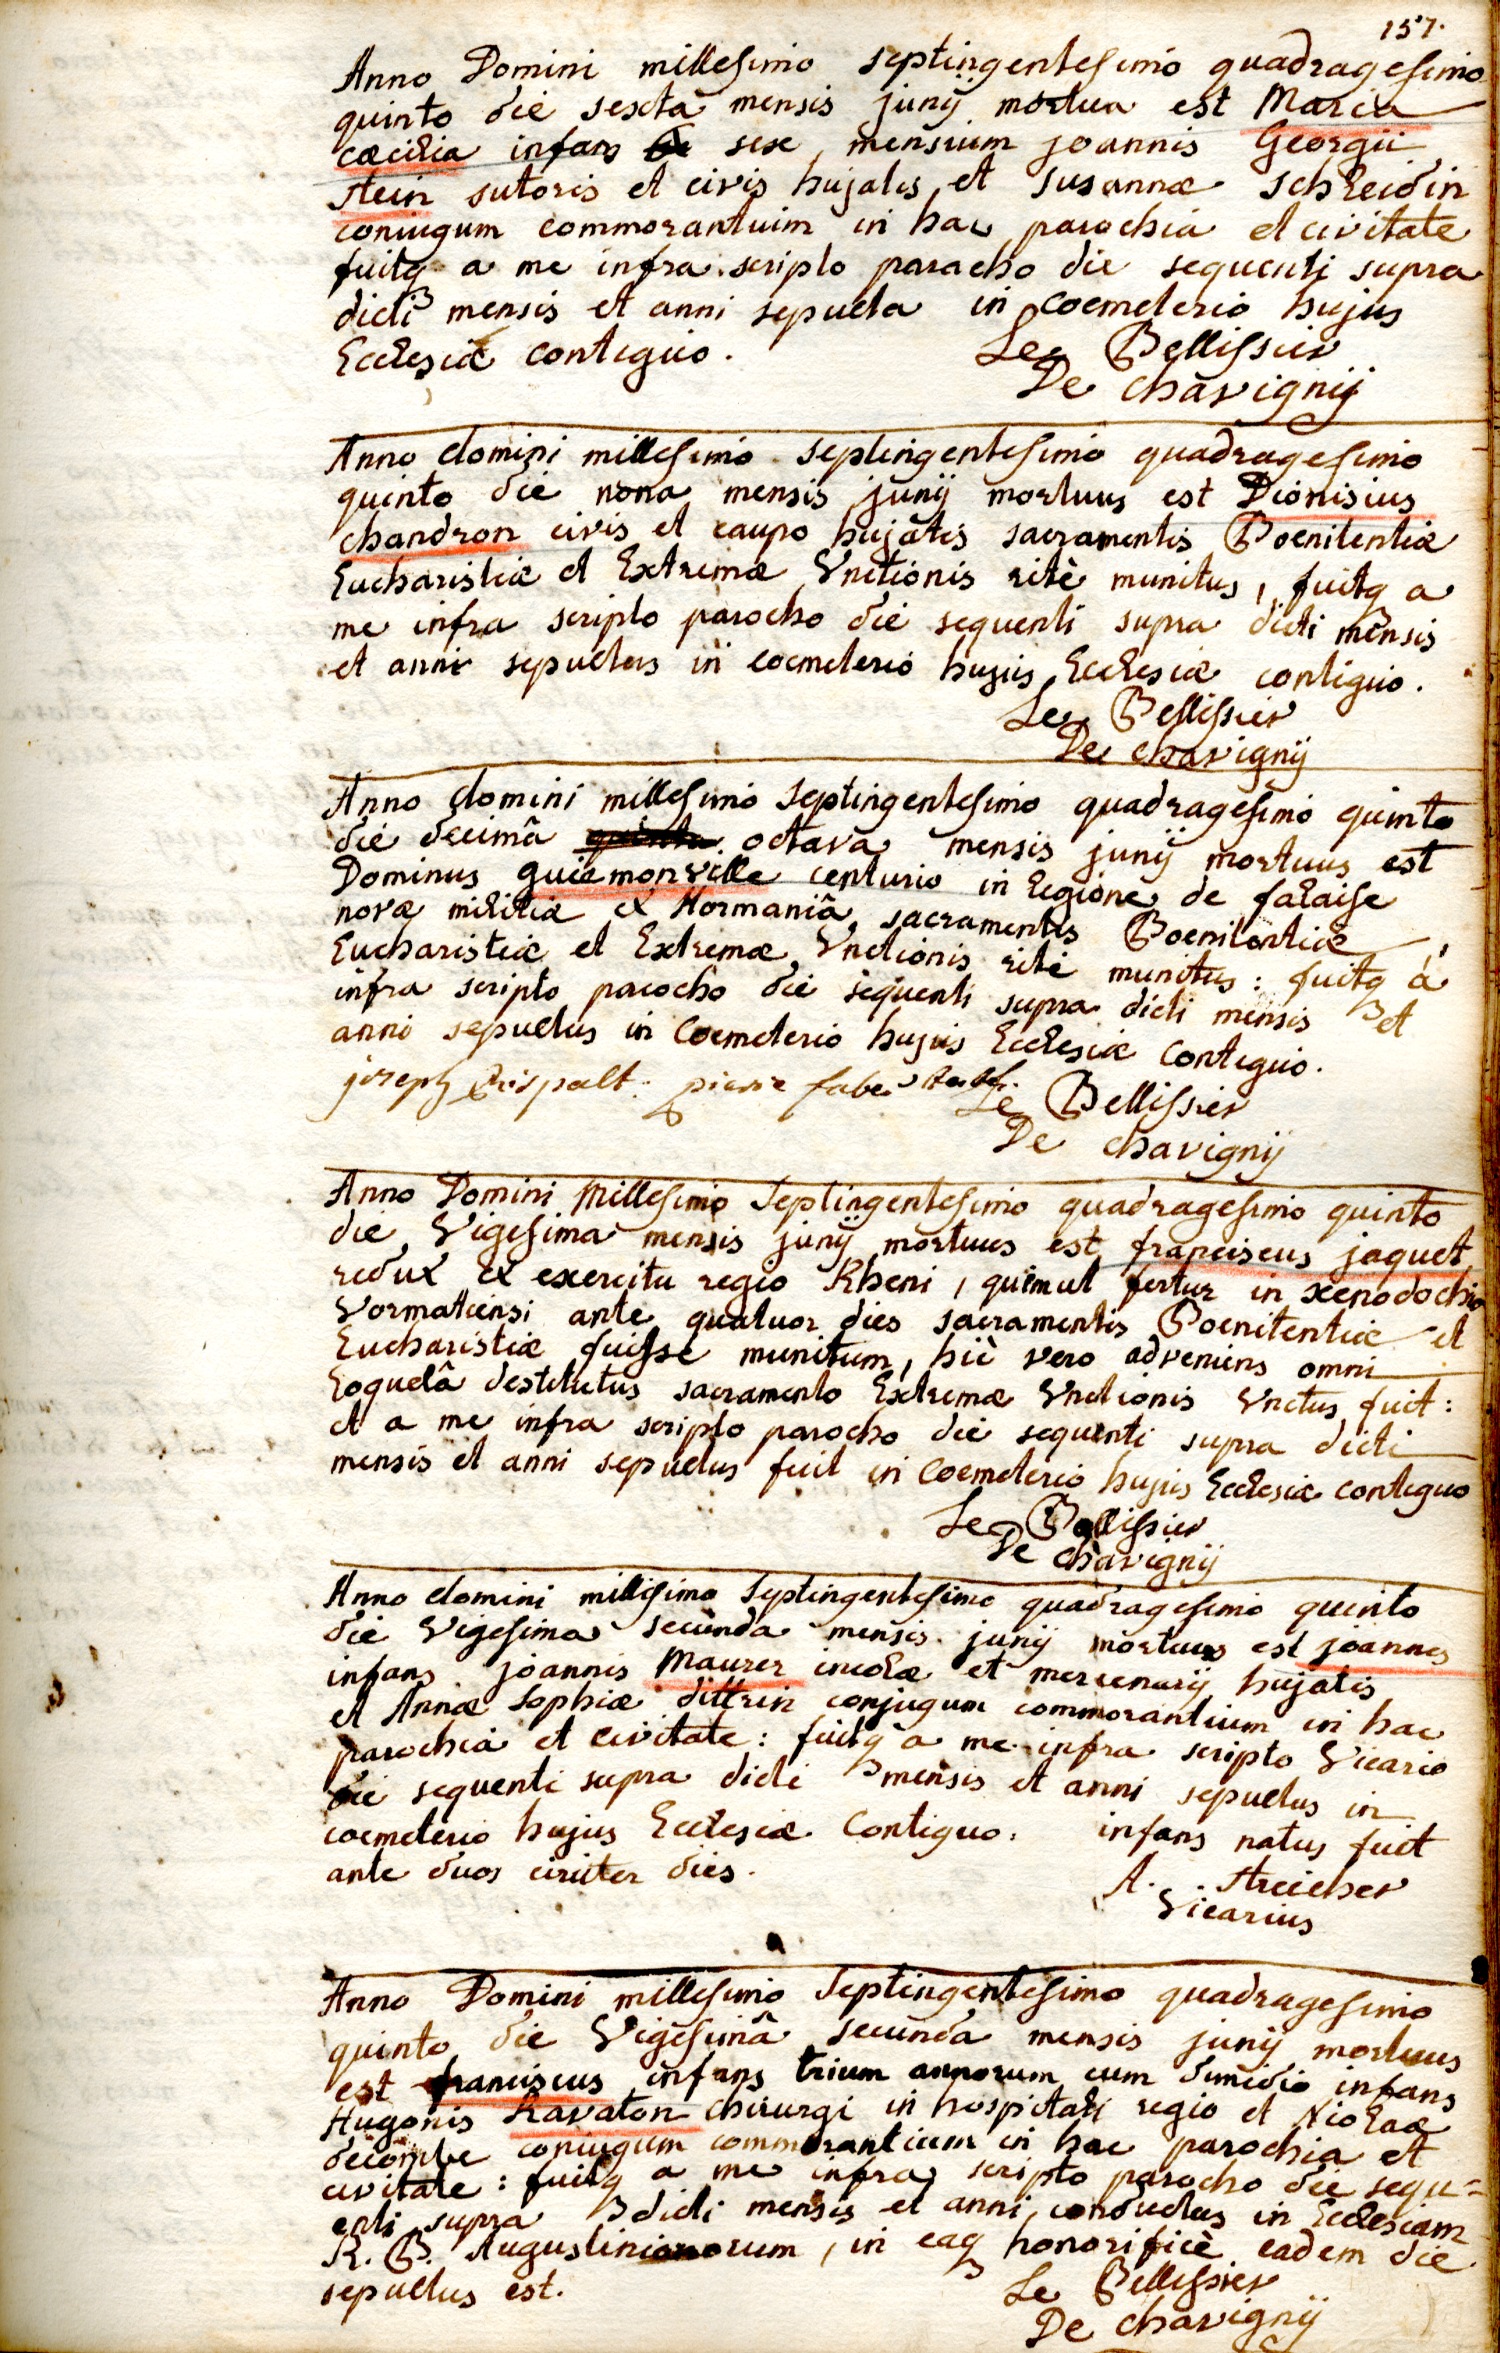 157.
Anno Domini millesimo septingentesimo quadragesimo
quinto die sexta mensis junij mortua est Maria
cæcilia infans sex mensium joannis Georgii
stein sutoris et civis hujatis et susannæ schleidin
coniugum commorantium in hac parochia et civitate
fuitq a me infra scripto parocho die sequenti supra
dicti mensis et anni sepulta in coemeterio hujus
Ecclesiæ contiguo. Le Pellissier
De chavignij
Anno domini millesimo septingentesimo quadragesimo
quinto die nona mensis junij mortuus est Dionisius
chandron civis et caupo hujatis sacramentis Poenitentiæ
Eucharistiæ et Extremæ Vnctionis ritè munitus, fuitq a
me infra scripto parocho die sequenti supra dicti mensis
et anni sepultus in coemeterio hujus Ecclesiæ contiguo.
Le Pellissier
De chavignij
Anno domini millesimo septingentesimo quadragesimo quinto
die decimâ quinta octava mensis junij mortuus est
Dominus guiemonville centurio in legione de falaise
novæ militiæ ex Normaniâ sacramentis Poenitentiæ
Eucharistiæ et Extremæ Vnctionis ritè munitus : fuitq à
infra scripto parocho die sequenti supra dicti mensis et
anni sepultus in Coemeterio hujus Ecclesiæ Contiguo.
joseph pierre faber
Le Pellissier
De chavignij
Anno Domini Millesimo Septingentesimo quadragesimo quinto
die Vigesima mensis junij mortuus est franciscus jaquet
redux ex exercitu regio Rheni, quem ut fertur in xenodochio
Vormatiensi ante quatuor dies sacramentis Poenitentiæ et
Eucharistiæ fuisse munitum, hic vero adveniens omni
Loquelâ destitutus sacramento Extremæ Vnctionis Vnctus fuit :
et a me infra scripto parocho die sequenti supra dicti
mensis et anni sepultus fuit in Coemeterio hujus Ecclesiæ contiguo
Le Pellissier
De chavignij
Anno domini millesimo Septingentesimo quadragesimo quinto
die Vigesima secunda mensis junij mortuus est joannes
infans joannis Maurer incolæ et mercenarij hujatis
et Annæ Sophiæ dittrin conjugum commorantium in hac
parochia et civitate : fuitq a me infra scripto Vicario
die sequenti supra dicti mensis et anni sepultus in
coemeterio hujus Ecclesiæ Contiguo. infans natus fuit
ante duos circiter dies.
A. Streicher
Vicarius
Anno Domini millesimo Septingentesimo quadragesimo
quinto die Vigesimâ secunda mensis junij mortuus
est franciscus infans trium annorum cum dimidio infans
Hugonis Ravaton chirurgi in hospitali regio et Nicolaæ
decombe coniugum commorantium in hac parochia et
civitate : fuitq a me infra scripto parocho die sequ=
enti supra dicti mensis et anni, conductus in Ecclesiam
R. P. Augustinianorum, in eaq honorificè eadem die
sepultus est. Le Pellissier
De chavignij